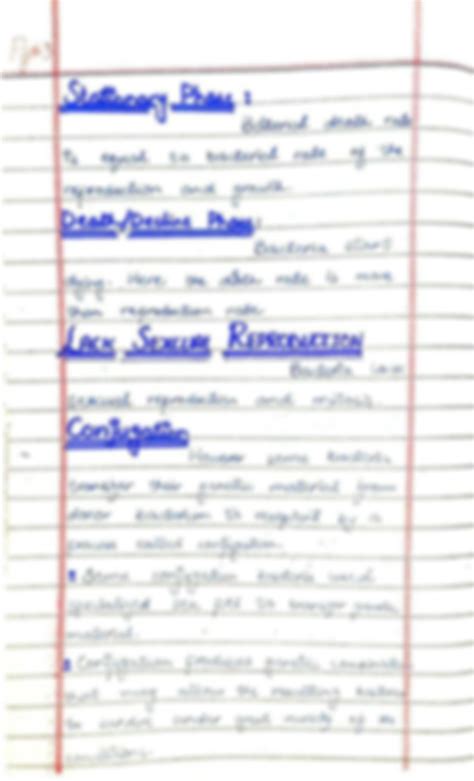 Stationary Phase :
Bacterial death rate
is equal to bacterial rate of the
reproduction and growth.
Death/Decline Phase:
Bacteria start
dying. Here the death rate is more
than reproduction rate
LACK SEXUAL REPRODUCTION
Bacteria lack
sexual reproduction and mitosis.
Conjugation
However some bacteria
transfer their genetic material from
donor bacterium to recipient by a
process called conjugation.
Some conjugation bacteria used
specialized sex pili to transfer genetic
material.
Conjugation produces genetic
that may allow the resulting bacteria
to survive under great variety of
conditions.